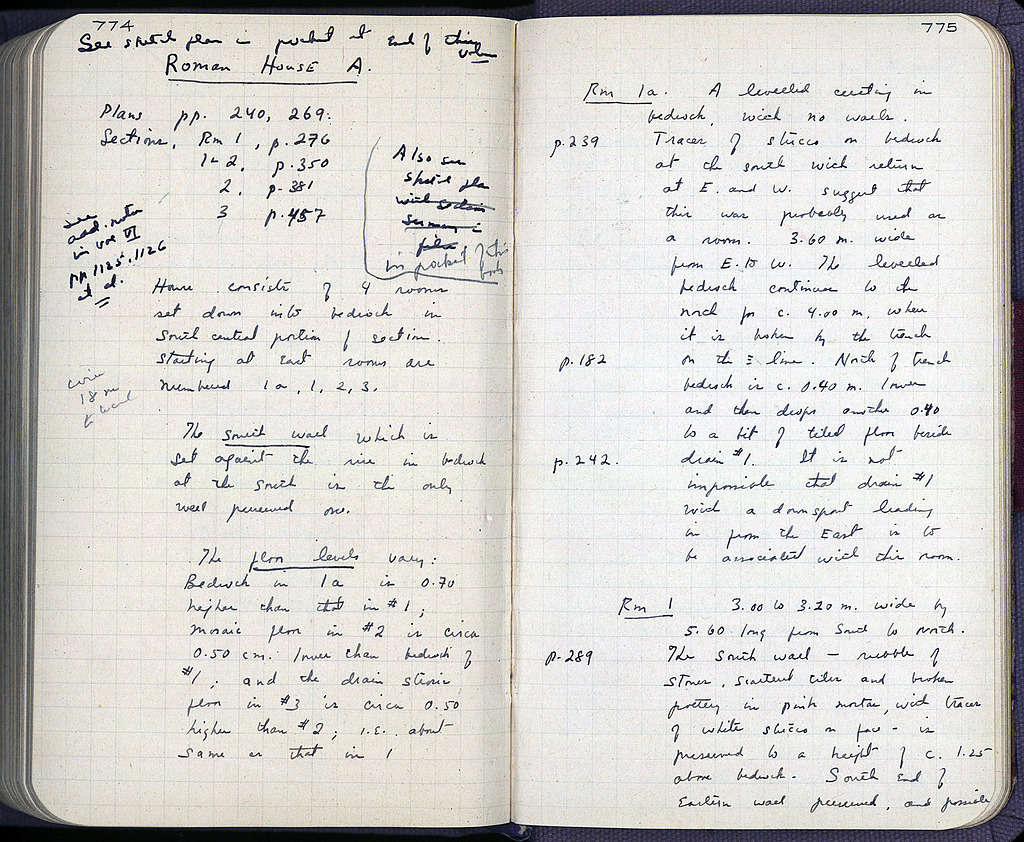 774
See sketch plan in pocket at end of this
volume
ROMAN HOUSE A.
Plans pp. 240, 269.
Sections, Rm 1, p. 276
1-2, p. 350
2, p. 381
3 p. 457
Also see
sketch plan
with section
in
in pocket of this
book
see
add. notes
in vol VI
pp 1125, 1126
et al.
House consists of 4 rooms
set down into bedrock in
South central portion of section.
Starting at East rooms are
numbered 1a, 1, 2, 3.
circa
18 m
The South wall which is
set against the rise in bedrock
at the South is the only
wall preserved
The floor levels vary:
Bedrock in 1a is 0.70
higher than that in #1;
mosaic floor in #2 is circa
0.50 cm. lower than bedrock of
#1; and the drain
floor in #3 is circa 0.50
higher than #2; i.e. about
same as that in 1
775
Rm 1a. A levelled cutting in
bedrock, with no walls.
p. 239 Traces of stucco on bedrock
at the south with return
at E. and W. suggest that
this was probably used as
a room. 3.60 m. wide
from E. to W. The levelled
bedrock continues to the
north for c. 4.00 m. where
it is broken by the trench
p. 182 on the Ξ line. North of trench
bedrock is c. 0.40 m. lower
and then drops another 0.40
to a bit of tiled floor beside
p. 242. drain #1. It is not
impossible that drain #1
with a downspout leading
in from the East is to
be associated with this room.
Rm 1 3.00 to 3.20 m. wide by
5.60 long from South to North.
p. 289 The South wall – rubble of
stones, scattered tiles and broken
pottery in pink mortar, with traces
of white stucco on face – is
preserved to a height of c. 1.25
above bedrock. South end of
Eastern wall preserved, and possible